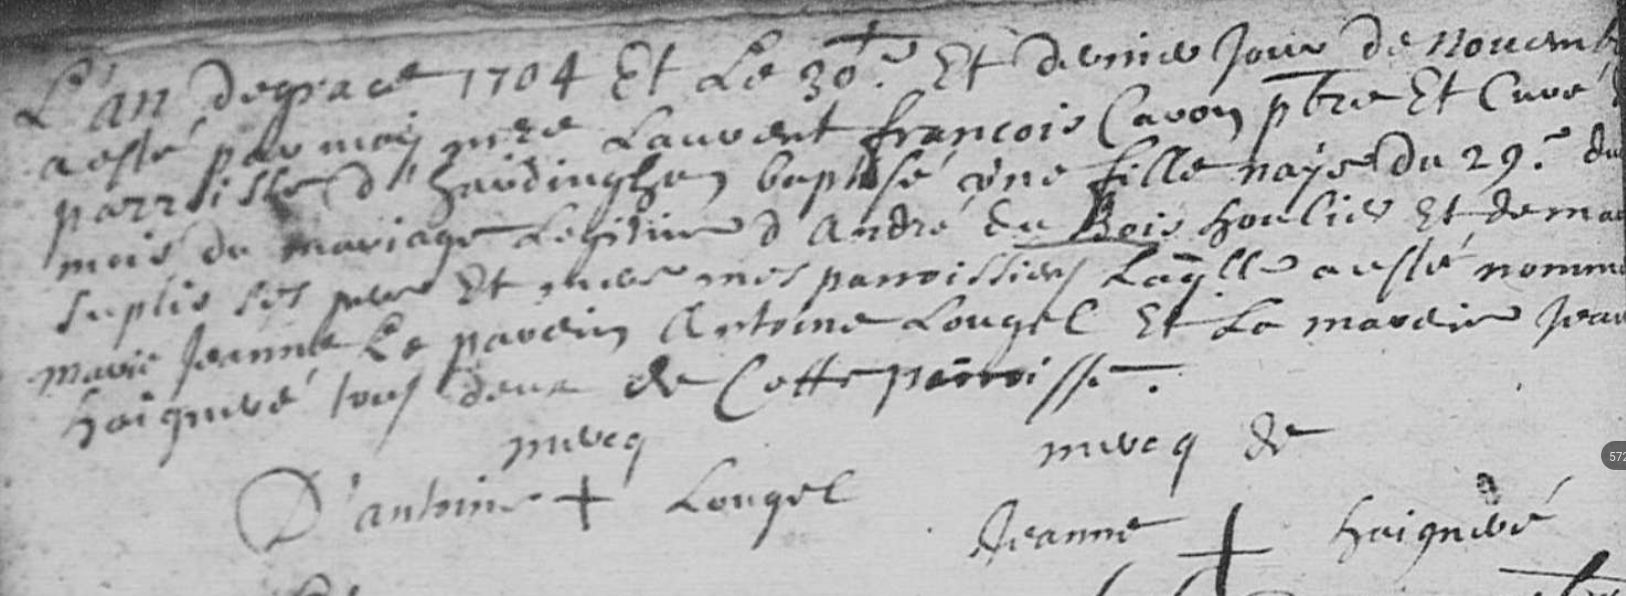 L'an de grace 1704 Et Le 30.e Et dernier Jour de Nouemb
a esté par moy mre Laurent francois Cavon pbre Et Curé
parroisse d'hardinghen baptisé vne fille nayse du 29.e du
mois du mariage Legitime d'André du Bois houlier Et de ma
ses pere Et mere mes parroissiens Laqlle a esté nommé
marie Jeanne Le parein Antoine Lougel Et La mareine Jean
haigneré tous deux de Cette parroisse.
mercq mercq de
D'antoine + Lougel
Jeanne + haigneré
572